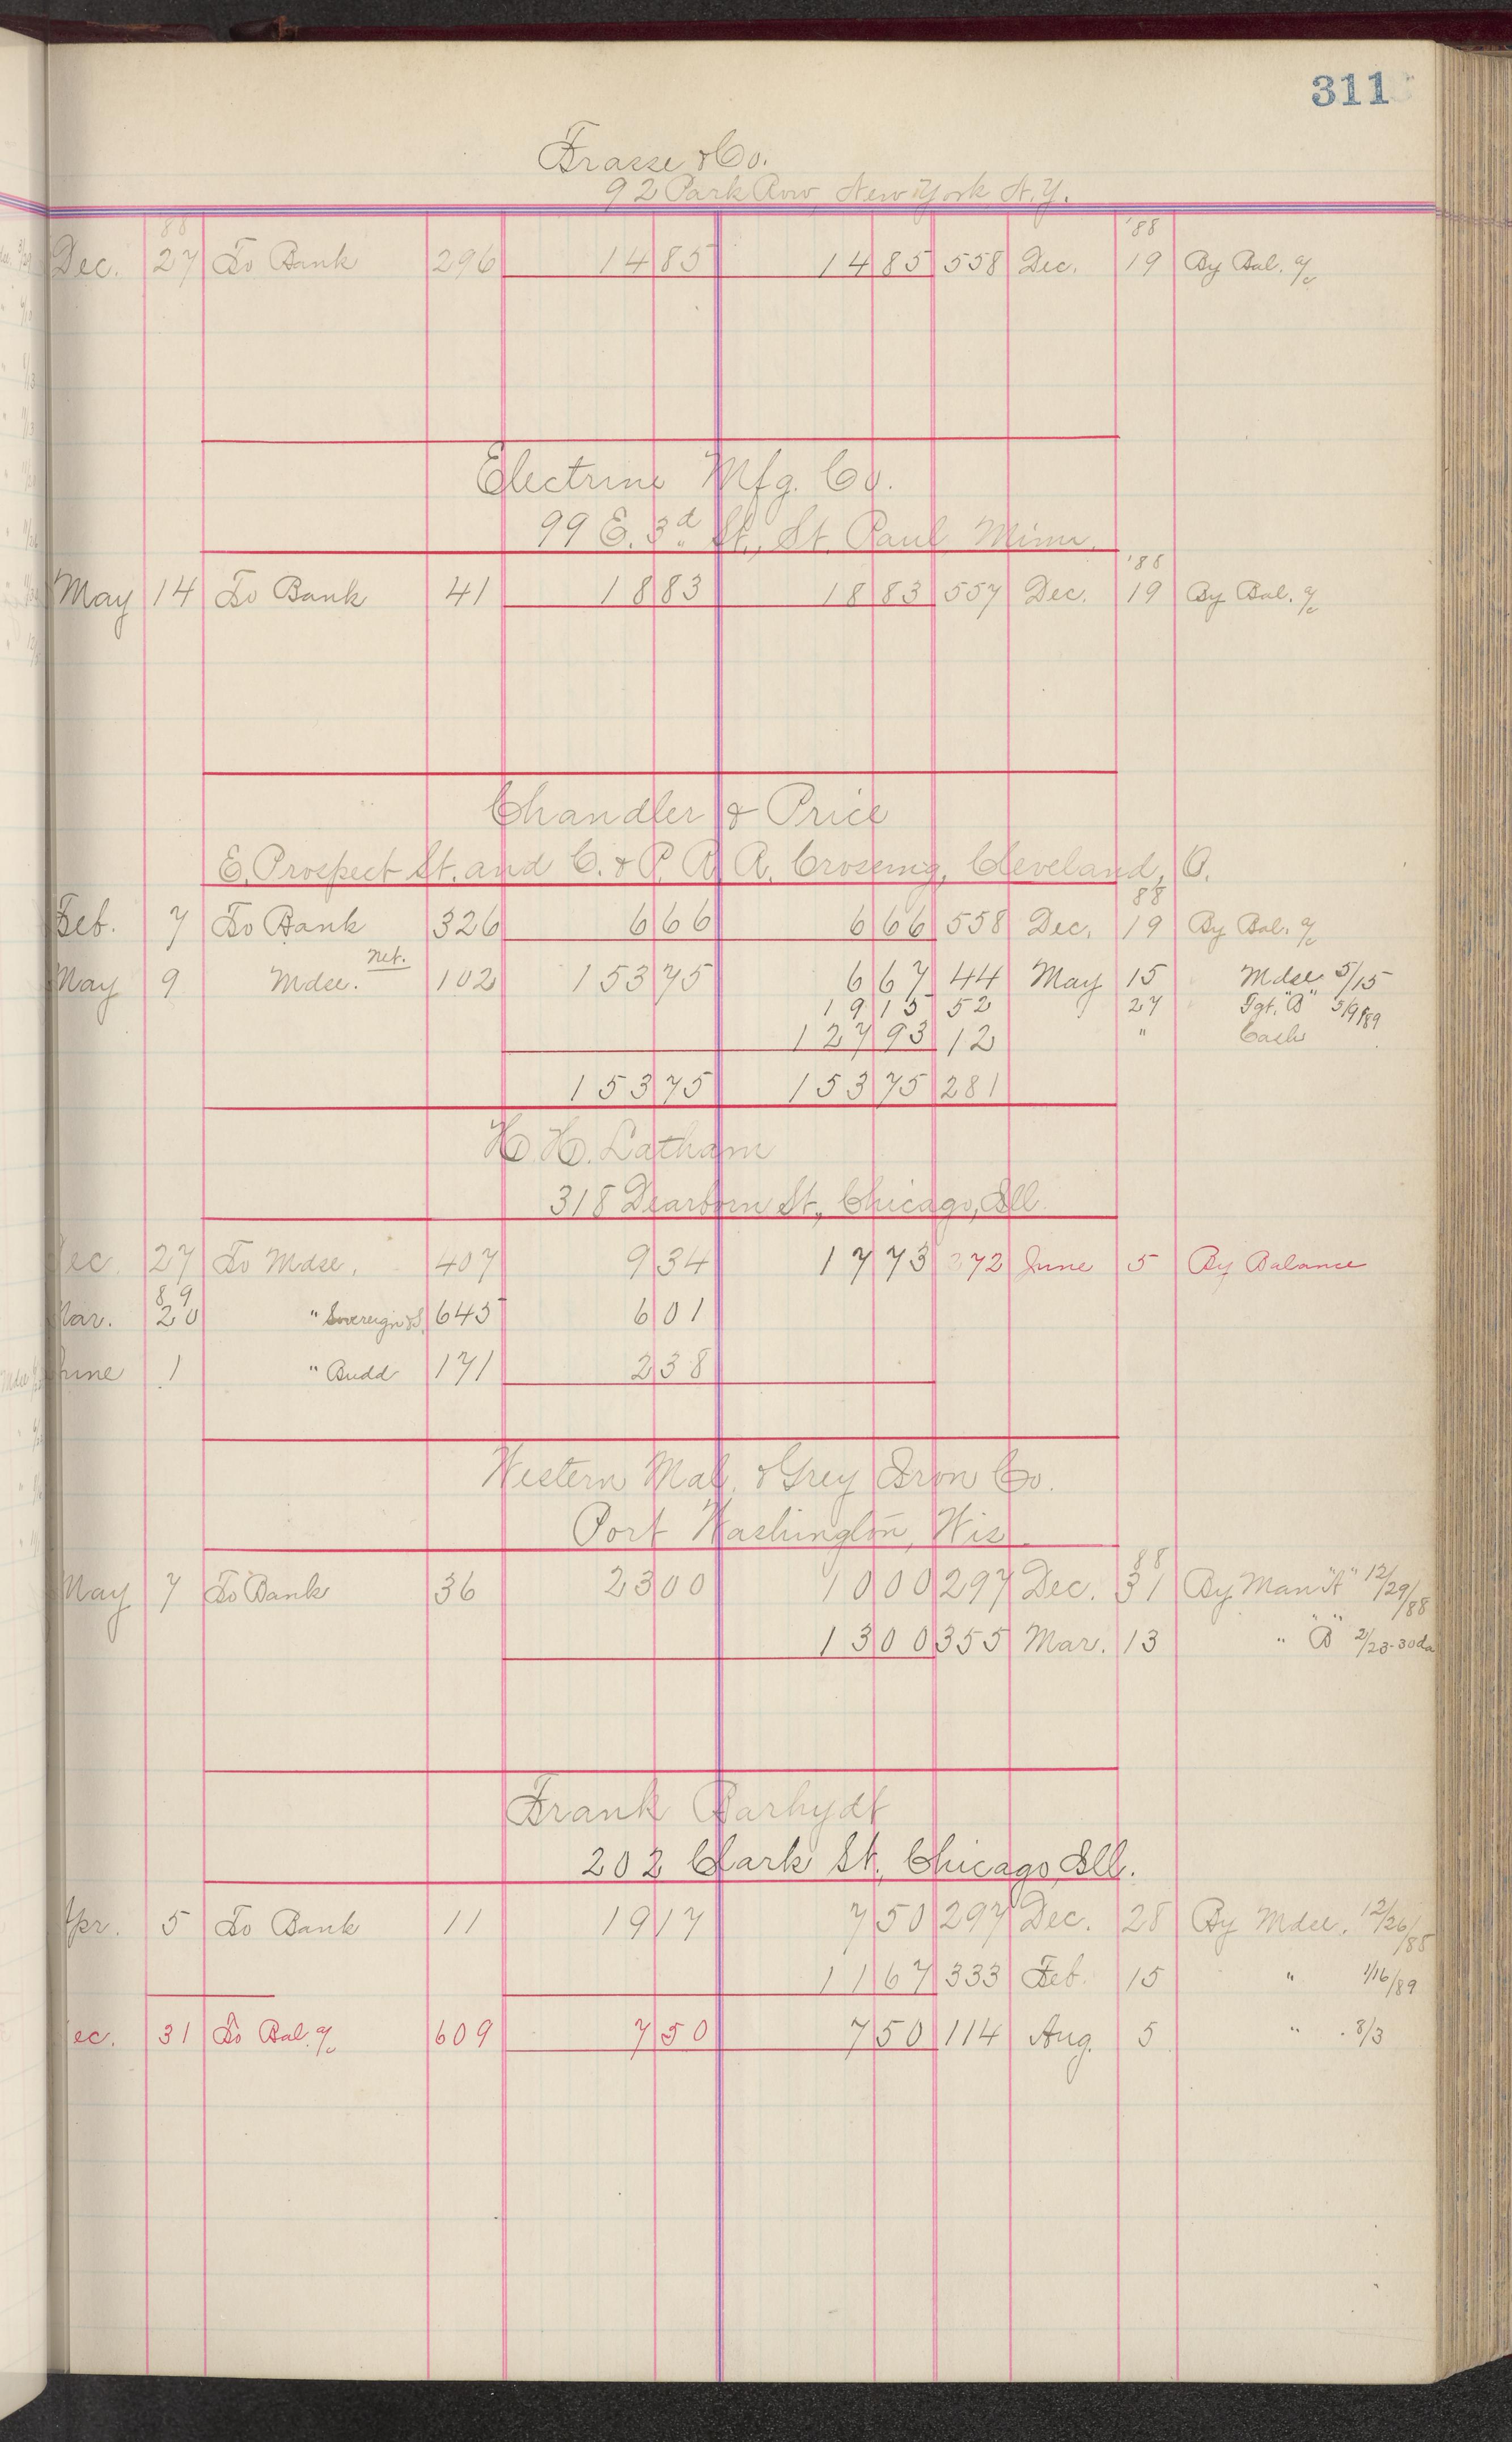 311
Frasse & Co.
92 Park Row, New York N.Y.
88 '88
Dec. 27 To Bank 296 14 85 14 85 558 Dec. 19 By Bal. a/c
Electrine Mfg. Co.
99 E. 3d St., St. Paul Minn.
'88
May 14 To Bank 41 18 83 18 83 557 Dec. 19 By Bal. a/c
Chandler & Price
E. Prospect St. and C. & P. R. R. Crossing, Cleveland, O.
88
Feb. 7 To Bank 326 6 66 6 66 558 Dec. 19 By Bal. a/c
May 9 Mdse. net. 102 153 75 6 67 44 May 15 Mdse 5/15
19 15 52 27 Fgt. "B" 5/9/89
127 93 12 " Cash
153 75 153 75 281
H. H. Latham
318 Dearborn St., Chicago, Ill.
ec. 27 To Mdse. 407 9 34 17 73 372 June 5 By Balance
89
Mar. 20 " Sovereign &S. 645 6 01
June 1 " Budd 171 2 38
Western Mal. & Grey Iron Co.
Port Washington, Wis.
88
May 7 To Bank 36 23 00 10 00 297 Dec. 31 By Man "A" 12/29/88
13 00 355 Mar. 13 " "B" 2/23-30da
Frank Barhydt
202 Clark St., Chicago, Ill.
Apr. 5 To Bank 11 19 17 7 50 297 Dec. 28 By Mdse. 12/26/88
11 67 333 Feb. 15 " 1/16/89
ec. 31 To Bal. a/c 609 7 50 7 50 114 Aug. 5 " 8/3